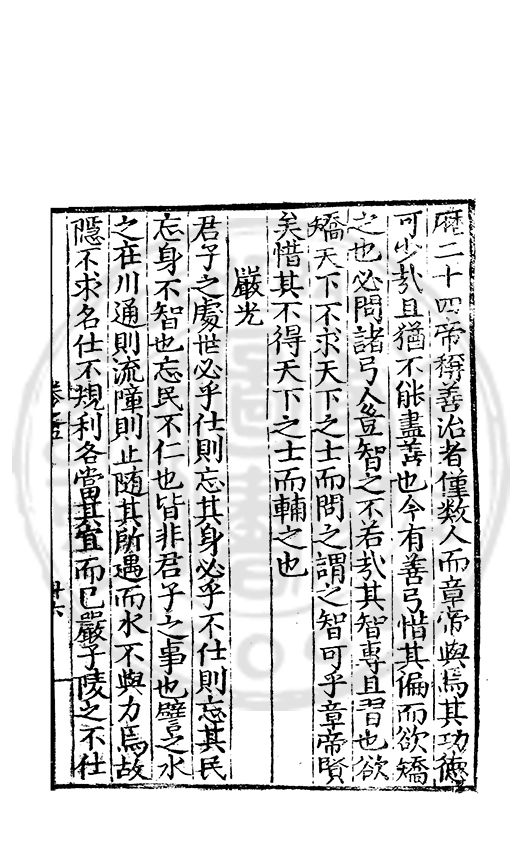 歷二十四帝稱善治者僅數人而章帝與焉其功德
可少㢤且猶不能盡善也今有善弓惜其偏而欲矯
之也必問諸弓人豈智之不若㢤其智專且習也欲
矯天下不求天下之士而問之謂之智可乎章帝賢
矣惜其不得天下之士而輔之也
嚴光
君子之處世必乎仕則忘其身必乎不仕則忘其民
忘身不智也忘民不仁也皆非君子之事也譬之水
之在川通則流障則止隨其所遇而水不與力焉故
隱不求名仕不規利各當其宜而已嚴子陵之不仕
卷五
廿六